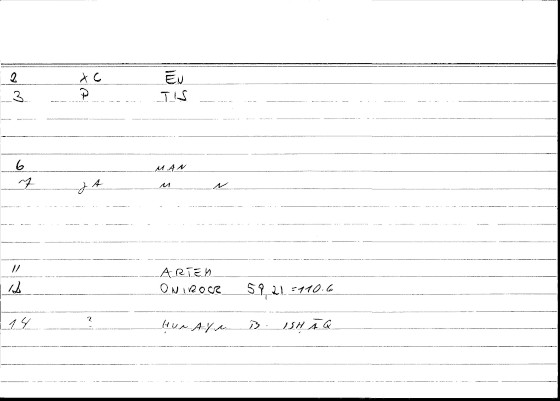 2 XC ĒN
3 P TIS
6 MAN
7 JA M N
11 ARTEM
12 ONIROCR 59,21=110.6
14 ? ḤUNAYN B. ISḤĀQ